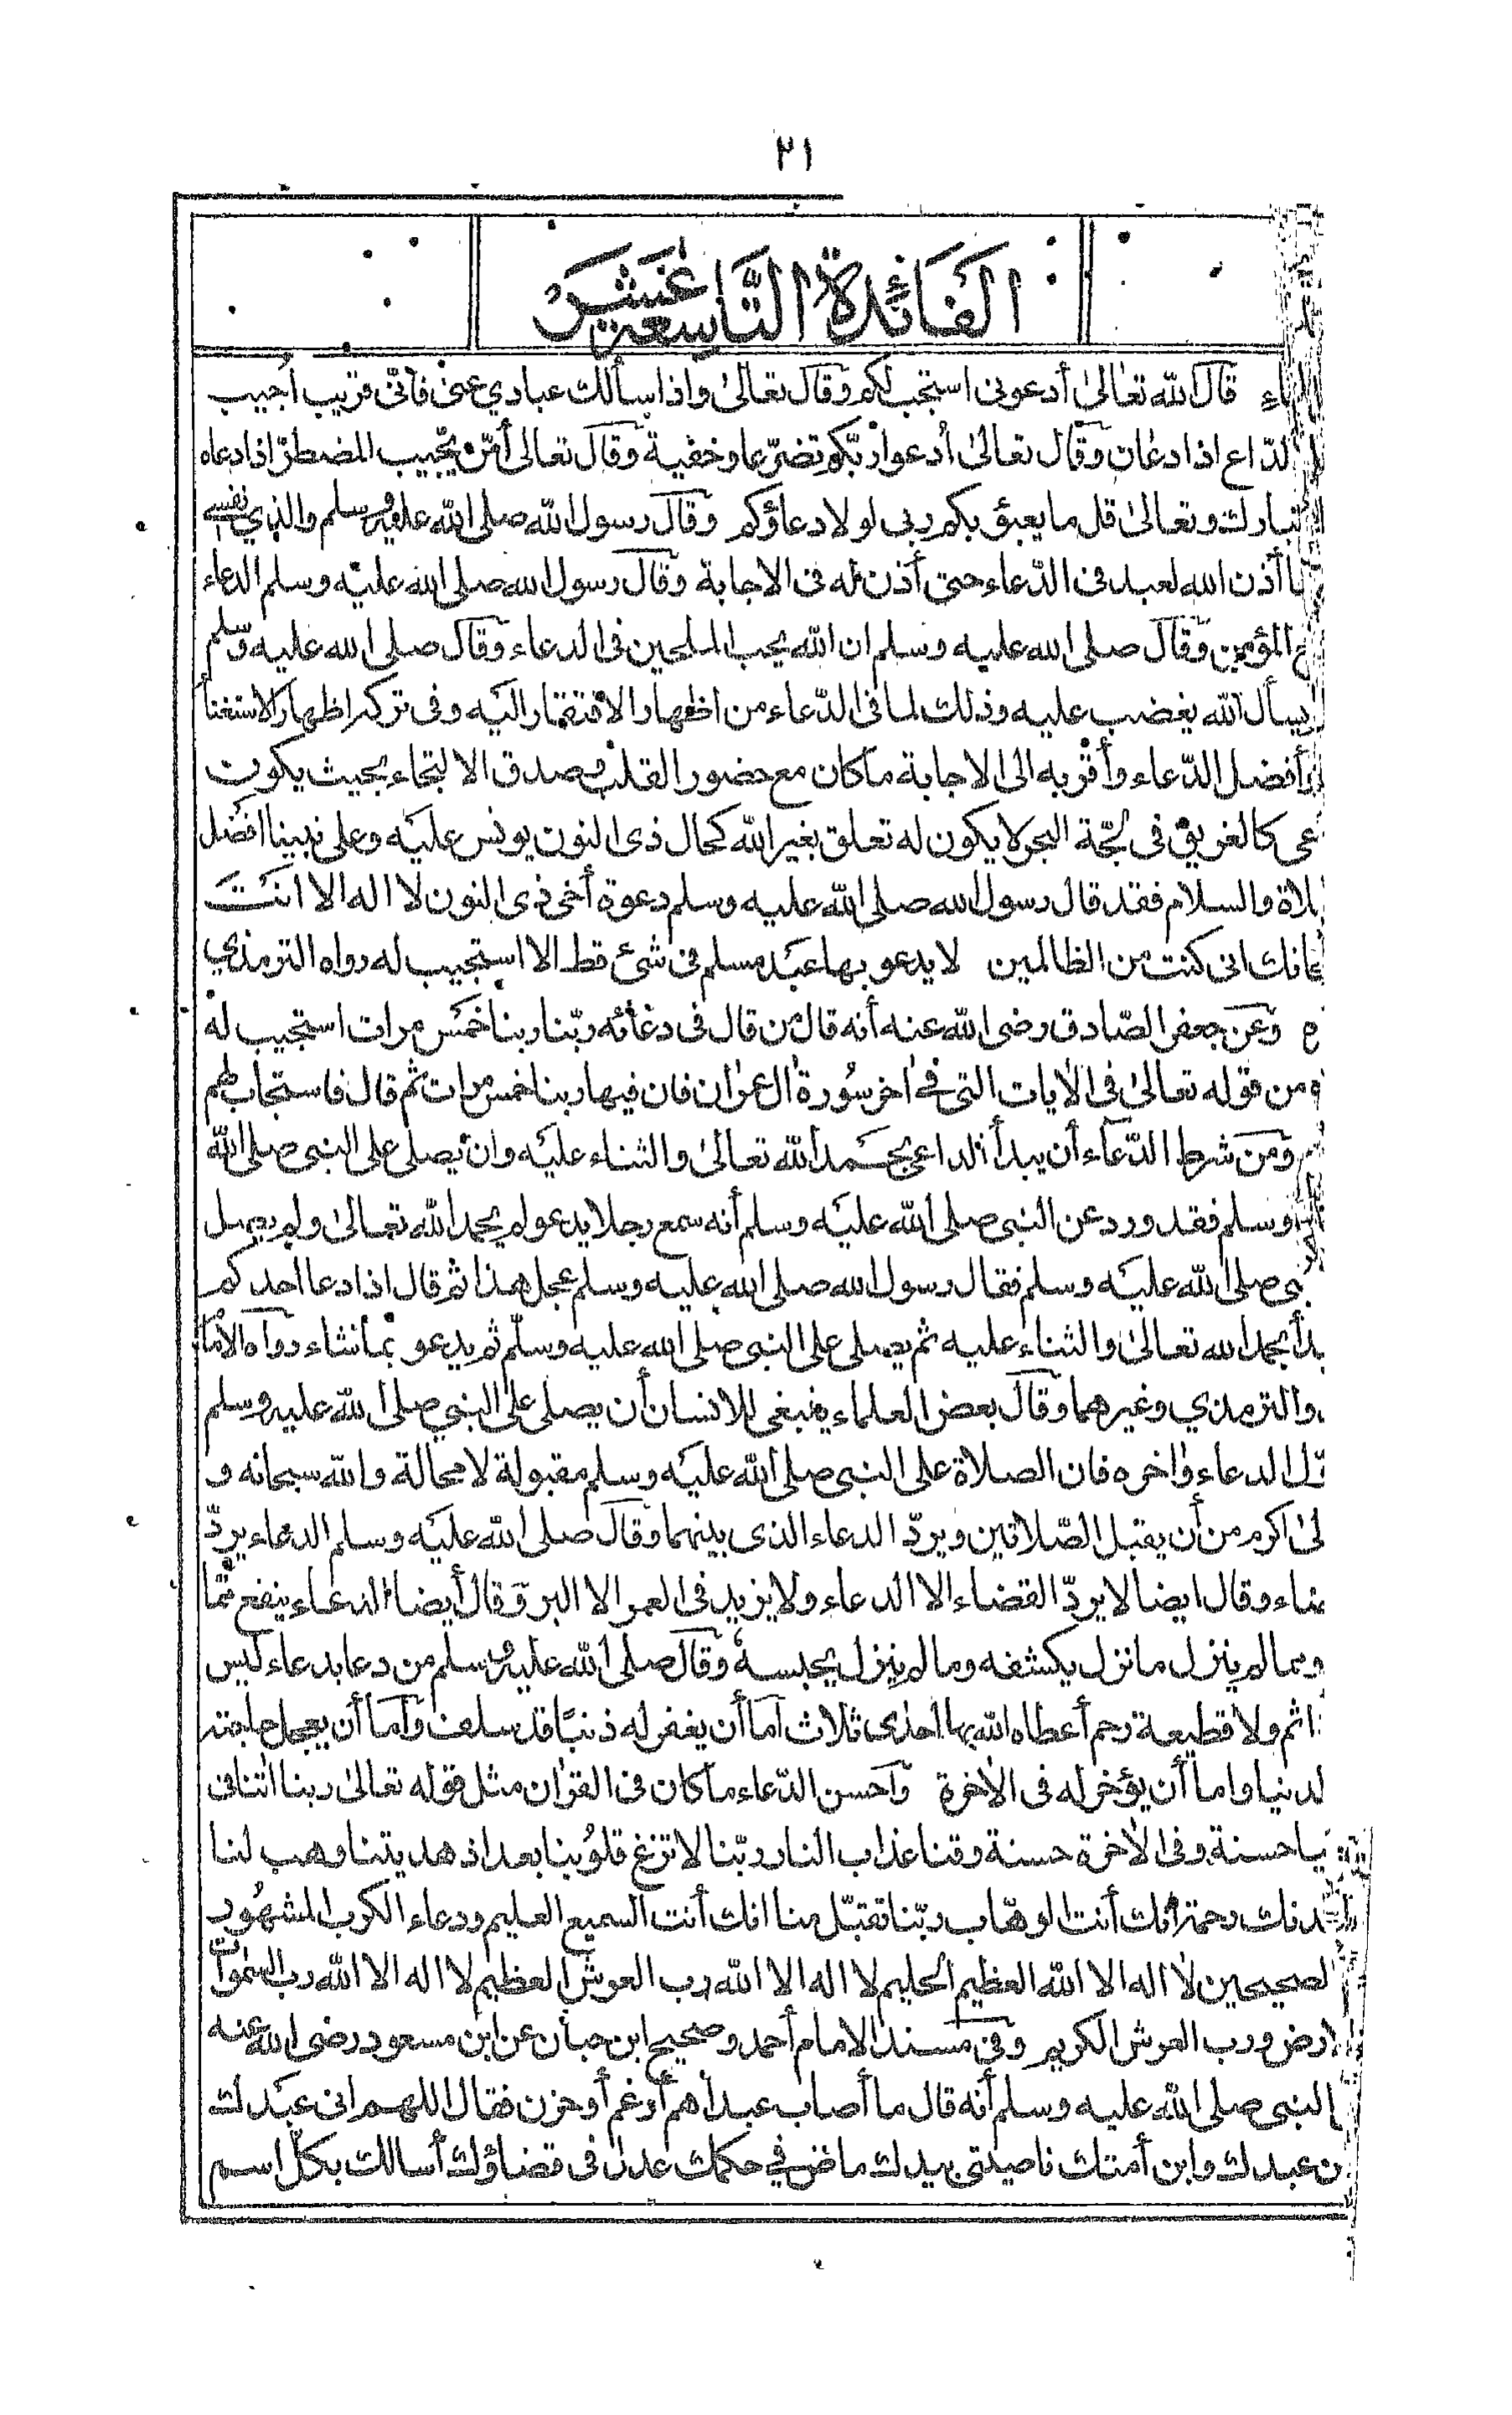 ٢١
الفَائدة التَّاسعة عَشَر
قال الله تعالىٰ أدعونى استجب لكم وقال تعالىٰ واذا سألك عبادي عنى فانّى قريب أجيب
الدّاع اذا دعان وقال تعالىٰ أدعوا ربّكم تضرّعا وخفية وقال تعالى أمّن يجّيب المضطرّ اذا دعاه
تبارك وتعالىٰ قل ما يعبؤ بكم ربى لولا دعاؤكم وقال رسول الله صلى الله عليه وسلم والذي نفسى
أذن الله لعبد فى الدّعاء حتى أذن له فى الاجابة وقال رسول الله صلى الله عليه وسلم الدعاء
المؤمن وقال صلى الله عليه وسلم ان الله يحب الملحين فى الدعاء وقال صلى الله عليه وسلم
يسأل الله يغضب عليه وذلك لما فى الدّعاء من اظهار الافتقار اليه وفى تركه اظهار الاستغنا
وأفضل الدّعاء وأقربه الى الاجابة ما كان مع حضور القلب وصدق الالتجاء بحيث يكون
عى كالغريق فى لجّة البحر لا يكون له تعلق بغير الله كحال ذى النون يونس عليه وعلى نبينا افضل
لاة والسلام فقد قال رسول الله صلى الله عليه وسلم دعوة أخى ذى النون لا اله الا انت
انك انى كنت من الظالمين لا يدعو بها عبد مسلم فى شئ قط الا استجيب له رواه الترمذي
وعن جعفر الصّادق رضى الله عنه أنه قال من قال فى دعائه ربّنا ربنا خمس مرات استجيب له
ومن قوله تعالىٰ فى الأيات التى فى اخر سُورة اٰل عمران فان فيها ربنا خمس مرات ثم قال فاستجاب لهم
ومن شرط الدّعاء أن يبدأ الداعى بحمد الله تعالىٰ والثناء عليه وان يصلى على النبى صلى الله
وسلم فقد ورد عن النبى صلى الله عليه وسلم أنه سمع رجلا يدعو لم يحمد الله تعالىٰ ولم يصل
بى صلى الله عليه وسلم فقال رسول الله صلى الله عليه وسلم عجل هذا ثم قال اذا دعا احدكم
بدأ بحمد الله تعالىٰ والثناء عليه ثم يصلى على النبى صلى الله عليه وسلّم ثم يدعو بما شاء رواه الأما
والترمذي وغيرهما وقال بعض العلماء ينبغى للانسان أن يصلى على النبي صلى الله عليه وسلم
ل الدعاء واٰخره فان الصلاة على النبى صلى الله عليه وسلم مقبولة لا محالة والله سبحانه و
لىٰ اكرم من أن يقبل الصّلاتين ويردّ الدعاء الذى بينهما وقال صلى الله عليه وسلم الدعاء يردّ
ضاء وقال ايضا لا يردّ القضاء الا الدعاء ولا يزيد فى العمر الا البر وقال أيضا الدعاء ينفع ممّا
ومما لم ينزل ما نزل يكشفه وما لم ينزل يحبسه وقال صلى الله عليه وسلم من دعا بدعاء ليس
اثم ولا قطيعة رحم أعطاه الله بها احدى ثلاث اما أن يغفر له ذنبًا قد سلف واما أن يعجل
لدنيا واما أن يؤخر له فى الأخرة واحسن الدّعاء ما كان فى القران مثل قوله تعالىٰ ربنا اٰتنا فى
يا حسنة وفى الأخرة حسنة وقنا عذاب النار ربّنا لا تزغ قلوُبنا بعد اذ هديتنا وهب لنا
لدنك رحمة انك أنت الوهّاب ربّنا تقبّل منا انك أنت السميع العليم ودعاء الكرب المشهُور
لصحيحين لا اله الا الله العظيم الحليم لا اله الا الله رب العرش العظيم لا اله الا الله رب السمٰوات
ارض ورب العرش الكريم وفى مسند الامام أحمد وصحيح ابن حبان عن ابن مسعود رضى الله عنه
النبى صلى الله عليه وسلم أنه قال ما أصاب عبدا هم أو غم أو حزن فقال اللهم انى عبدك
ن عبدك وابن أمتك ناصيتى بيدك ماض في حكمك عدل فى قضاؤك أسالك بكل اسم